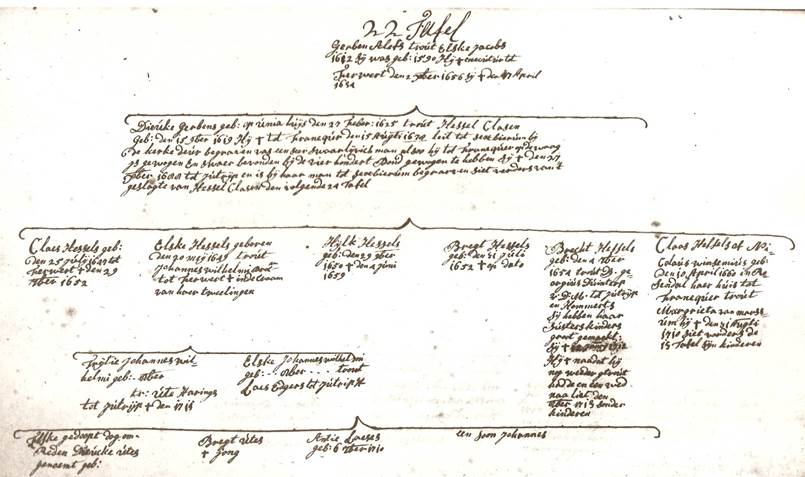 22 Tafel
Gerben Alefs trout Elske Jacobs
1612 sij was geb: 1590 Hij †
ferwert den 2 9ber 1656 sij † den 17 April
1634
Diericke Gerbens geb: op unia huijs den 27 feber: 1625 trout Hessel Clasen
Geb: den 15 9ber 1619 Hij † tot franequer den 15 Augti 1674 leit tot sexbierum bij
de kerke deur begraven was een seer swaarlijvich man alsoo hij tot franequer op de waag
is gewogen en swaer bevonden bij de vier hondert Pond gewogen te hebben sij † den 27
9ber 1688 tot pitrijp en is bij haar man tot sexbierum begraven siet vorders van't
geslagte van Hessel Clasen den volgende 24 Tafel
Claes Hessels geb:
den 25 julij 1647 tot
ferwert † den 29
7ber 1652
Elske Hessels geboren
den 20 meij 1649 trout
Johannes wilhelmi
tot ferwert † in de craam
van haer tweelingen
Hijlk Hessels
geb: den 29 9ber
1650 † den 4 juni
1659
Bregt Hessels
geb: den 31 julii
1652 † dato
Brecht Hessels
geb: den 4 9ber
1654 trout Ds. ge-
orgius
v: D: M: tot pitrijp
en Hommerts
sij hebben haar
susters kinders
groot gemaekt
sij †
Hij † naedat hij
nog weder getrout
hadde en een wed
naa liet den
9ber 1713 sonder
kinderen
Claas Hessels of Ni-
Colaus winsemius geb:
den 10 April 1660 in
sendal haer huis tot
franequer trout
Margrieta van
um hij † den 21 Augti
1710 siet vorders de
15 Tafel sijn kinderen
Fijtie Johannes wil-
helmi geb: 9ber
tr: Uite Harings
tot pitrijp † den 1715
Elske Johannes wilhelmi
geb: ... 9ber .... trout
Laes Edgers tot pitrijp
Elske gedoopt dog om-
reden Diericke uites
genoemt geb:
Bregt uites
† Jong
Antie Laeses
geb: 6 7ber 1710
een soon Johannes